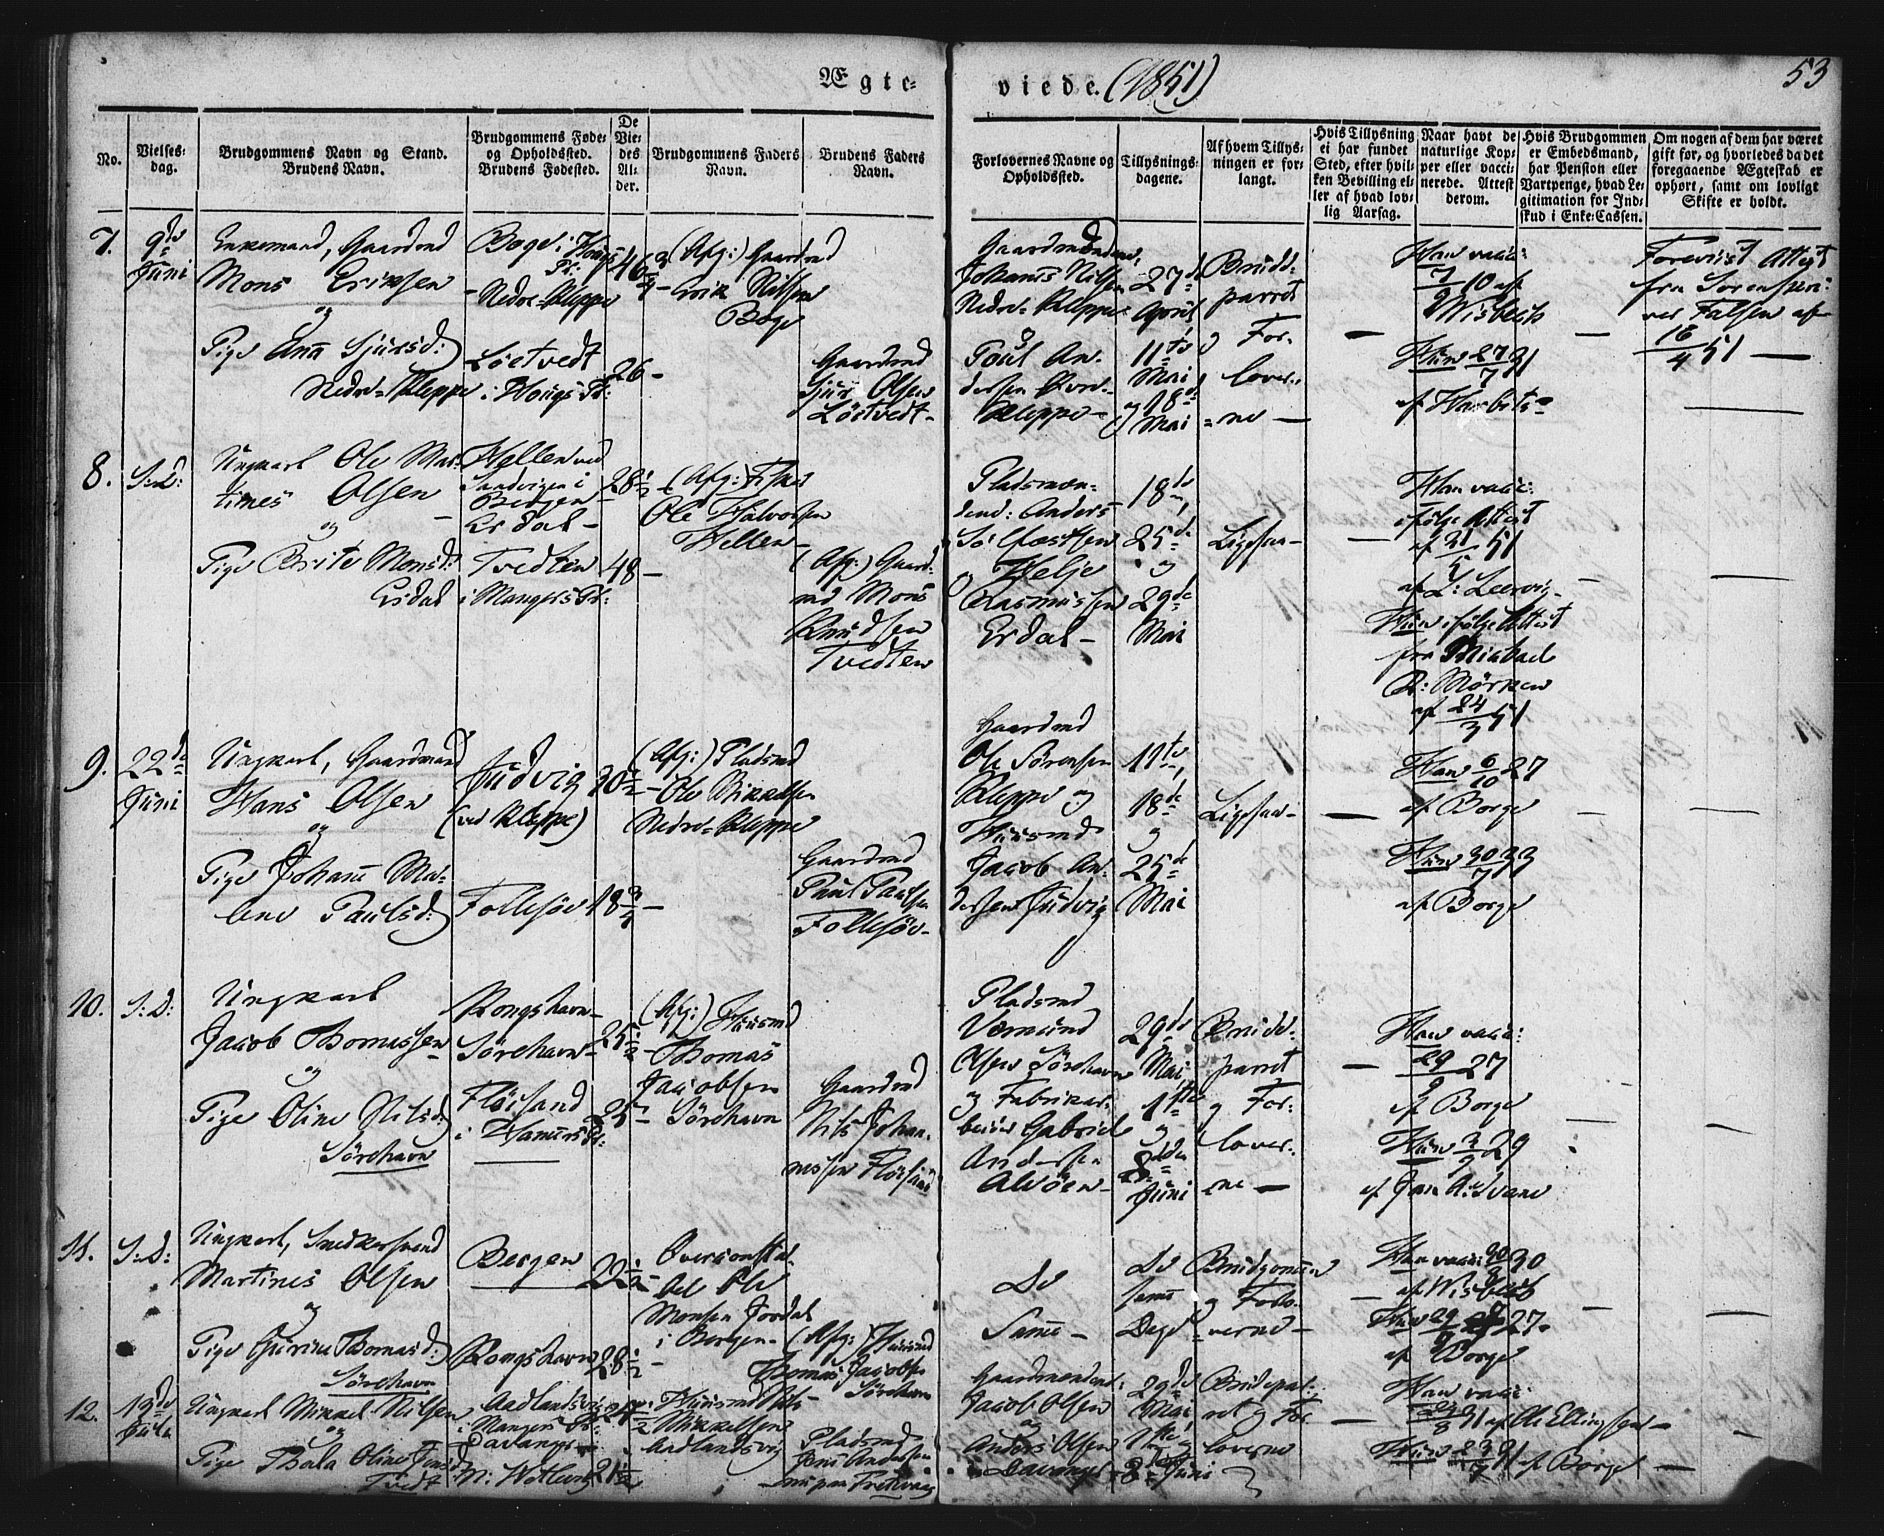 Ægte-
viede. (1851)
53
No.
Vielses-
dag.
Brudgommens Navn og Stand.
Brudens Navn.
Brudgommens Føde-
og Opholdssted.
Brudens Fødested.
De
Vie-
des
Al-
der.
Brudgommens Faders
Navn.
Brudens Faders
Navn.
Forlovernes Navne og
Opholdssted.
Tillysnings-
dagene.
Af hvem Tillys-
ningen er for-
langt.
Hvis Tillysning
ei har fundet
Sted, efter hvil-
ken Bevilling el-
ler af hvad lov-
lig Aarsag.
Naar havt de
naturlige Kop-
per eller vacci-
nerede. Attest
derom.
Hvis Brudgommen
er Embedsmand,
har Pension eller
Vartpenge, hvad Le-
gitimation for Ind-
skud i Enke-Cassen.
Om nogen af dem har været
gift før, og hvorledes da det
foregaaende Ægteskab er
ophørt, samt om lovligt
Skifte er holdt.
7.
9de
Juni
Enkemand, Gaardmd
Mons Eriksen
og
Pige Anna Sjursd:
Nedre-Kleppe
Boge i Hougs
Pr:
Nedre-Kleppe
Løetvedt
i Hougs Pr:
46 3/4
26
(Afg:) Gaardmd
Erik Nilsen
Boge
Gaardmd
Sjur Olsen
Løetvedt
Gaardmændene
Johannes Nilsen
Nedre Kleppe
og
Poul An-
dersen Øvre-
Kleppe
27de
April
11te
Mai
og 18de
Mai
Brude-
parret
og For-
lover-
ne
Han vacc:
7/9 10 af
Wisbech
Hun 27/7 31
af Harbitz
Foreviist Attest
fra Sorenskri-
ver Falsen af
16/4 51
8.
S: D:
Ungkarl Ole Mar-
tines Olsen
og
Pige Brite Monsd:
Erdal
Hellen ved
Sandvigen i
Bergen
Erdal
Tvedten
i Mangers Pr:
28 1/2
48
(Afg:)
Ole Halvorsen
Hellen
(Afg:) Gaard-
md Mons
Knudsen
Tvedten
Pladsmæn-
dene: Anders
og Helje
Rasmussen
Erdal
18de,
25de
og
29de
Mai
Ligesaa
Han vacc:
ifølge Attest
af 21/5 51
af L: Leervig
Hun ifølge Attest
fra Michael
R: Mørken
af 24/3 51
9.
22de
Juni
Ungkarl, Gaardmand
Hans Olsen
og
Pige Johanne Ma-
lene Paulsd:
Judvig
(ved Kleppe)
Follesøe
30 1/2
18 3/4
(Afg:) Pladsmd
Ole Mikkelsen
Nedre-Kleppe
Gaardmd
Paul Paulsen
Follesøe
Gaardmd
Ole Sørensen
Kleppe og
Huusmd
Jacob An-
dersen Judvig
11te,
18de
og
25de
Mai
Ligesaa
Han 6/10 27
af Borge
Hun 30/7 33
af Borge
10.
S: D:
Ungkarl
Jacob Thomassen
og
Pige Oline Nilsd:
Sørehavn
Kongshavn
Sørehavn
Fløisand
i Hammers Pr:
25 1/2
25
(Afg:) Huusmd
Thomas
Jacobsen
Sørehavn
Gaardmd
Nils Johan-
nessen Fløisand
Pladsmd
Værmund
Olsen Sørehavn
og Fabrikar-
beider Gabriel
Andersen
Alvøen
29de
Mai
1ste
og
8de
Juni
Brude-
parret
og For-
lover-
ne
Han vacc:
29/9 27
af Borge
Hun 3/9 29
af Jan A: Svane
11.
S: D:
Ungkarl, Snedkersvend
Martines Olsen
og
Pige Gurine Thomasd:
Sørehavn
Bergen
Kongshavn
22 1/2
28 1/2
Overconsta-
bel Ole
Monsen Jordal
i Bergen
(Afg:) Huusmd
Thomas Jacobsen
Sørehavn
De
Samme
De
samme
Dage
Brudgommen
og Forlo-
verne
Han vacc: 30
af Wisbech
Hun 29/9 27
af Borge
12.
13de
Juli
Ungkarl Mikkel Nilsen
og
Pige Thala Oline Jensd
Tvedt
Aadlandsvig
i Mangers Pr:
Davanger
21 1/2
Huusmd Nils
Mikkelsen
Aadlandsvig
Pladsmd
Jens Andersen
Gaardmændene:
Jacob Olsen
og
Anders Olsen
Davanger
29de
Mai
1ste og
8de Juni
Brudepar-
ret og For-
loverne
Han vacc:
31 af Ole Ellingsen
Hun 23/7 31 af Borge